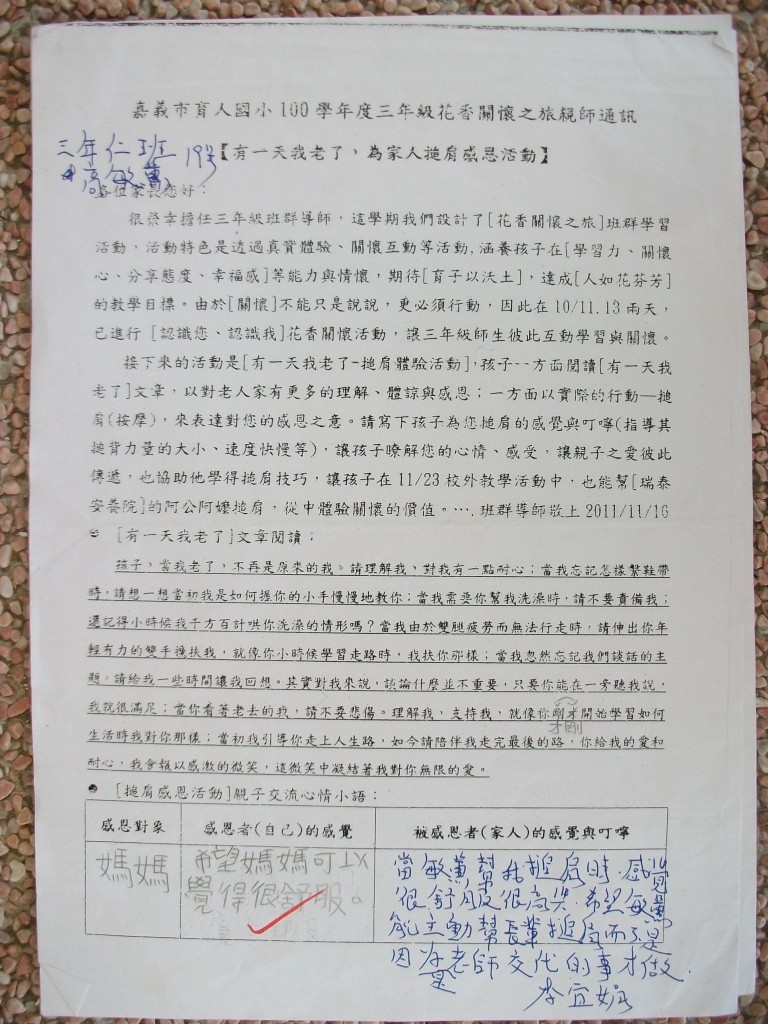 嘉義市育人國小100學年度三年級花香關懷之旅親師通訊
三年仁班 19號
【有一天我老了，為家人搥肩感恩活動】
高敏薰
各位家長您好：
很榮幸擔任三年級班群導師，這學期我們設計了[花香關懷之旅]班群學習
活動，活動特色是透過真實體驗、關懷互動等活動，涵養孩子在[學習力、關懷
心、分享態度、幸福感]等能力與情懷，期待[育子以沃土]，達成[人如花芬芳]
的教學目標。由於[關懷]不能只是說說，更必須行動，因此在10/11.13兩天，
已進行 [認識您、認識我]花香關懷活動，讓三年級師生彼此互動學習與關懷。
接下來的活動是[有一天我老了-搥肩體驗活動]，孩子一方面閱讀[有一天我
老了]文章，以對老人家有更多的理解、體諒與感恩；一方面以實際的行動—搥
肩(按摩)，來表達對您的感恩之意。請寫下孩子為您搥肩的感覺與叮嚀(指導其
搥背力量的大小、速度快慢等)，讓孩子瞭解您的心情、感受，讓親子之愛彼此
傳遞，也協助他學得搥肩技巧，讓孩子在11/23校外教學活動中，也能幫[瑞泰
安養院]的阿公阿嬤搥肩，從中體驗關懷的價值。….班群導師敬上 2011/11/16
[有一天我老了]文章閱讀：
孩子，當我老了，不再是原來的我。請理解我，對我有一點耐心；當我忘記怎樣繫鞋帶
時，請想一想當初我是如何握你的小手慢慢地教你；當我需要你幫我洗澡時，請不要責備我；
還記得小時候我千方百計哄你洗澡的情形嗎？當我由於雙腿疲勞而無法行走時，請伸出你年
輕有力的雙手攙扶我，就像你小時候學習走路時，我扶你那樣；當我忽然忘記我們談話的主
題，請給我一些時間讓我回想。其實對我來說，談論什麼並不重要，只要你能在一旁聽我說，
我就很滿足；當你看著老去的我，請不要悲傷。理解我，支持我，就像你剛才開始學習如何
才剛
生活時我對你那樣；當初我引導你走上人生路，如今請陪伴我走完最後的路，你給我的愛和
耐心，我會報以感激的微笑，這微笑中凝結著我對你無限的愛。
[搥肩感恩活動]親子交流心情小語：
感恩對象 感恩者(自己)的感覺 被感恩者(家人)的感覺與叮嚀
媽媽
希望媽媽可以
覺得很舒服。
當敏薰幫我搥肩時，感覺
很舒服很高興，希望敏薰
能主動幫長輩搥肩而不是
因為老師交代的事才做。
是
李宜娟